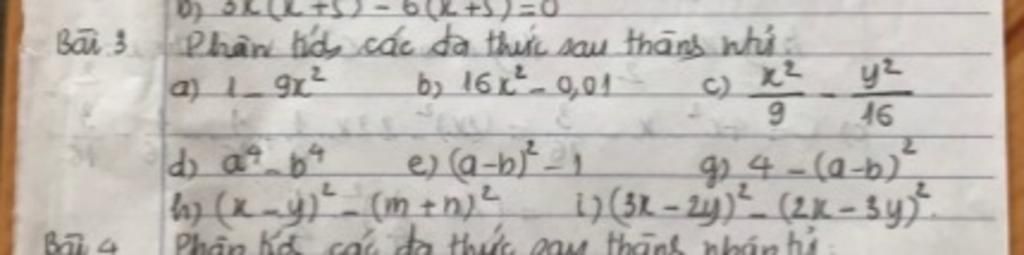 b) 3x(x+5) - 6(x+5)=0
Bài 3 Phân tích các đa thức sau thành nhtử:
a) 1 - 9x² b) 16x² - 0,01 c) x²/9 - y²/16
d) a⁴ - b⁴ e) (a-b)² - 1 g) 4 - (a-b)²
h) (x-y)² - (m+n)² i) (3x-2y)² - (2x-3y)²
Bài 4 Phân tích các đa thức sau thành nhân tử: